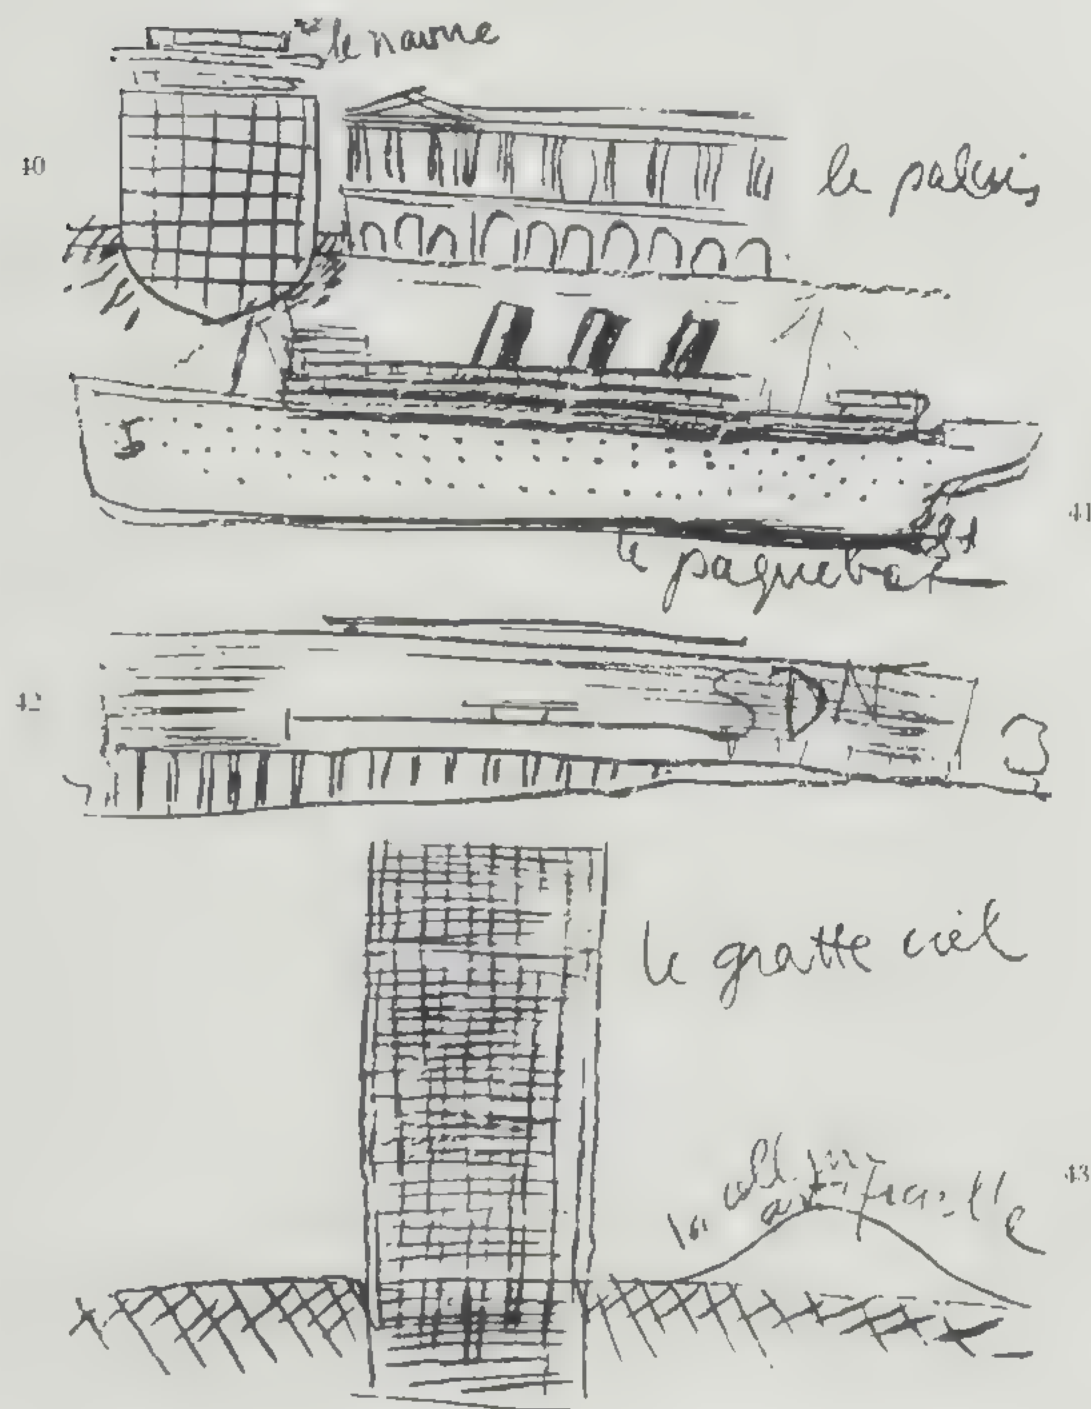 le navire
40
le palais
41
le paquebot
42
le gratte ciel
43
la colline
artificielle